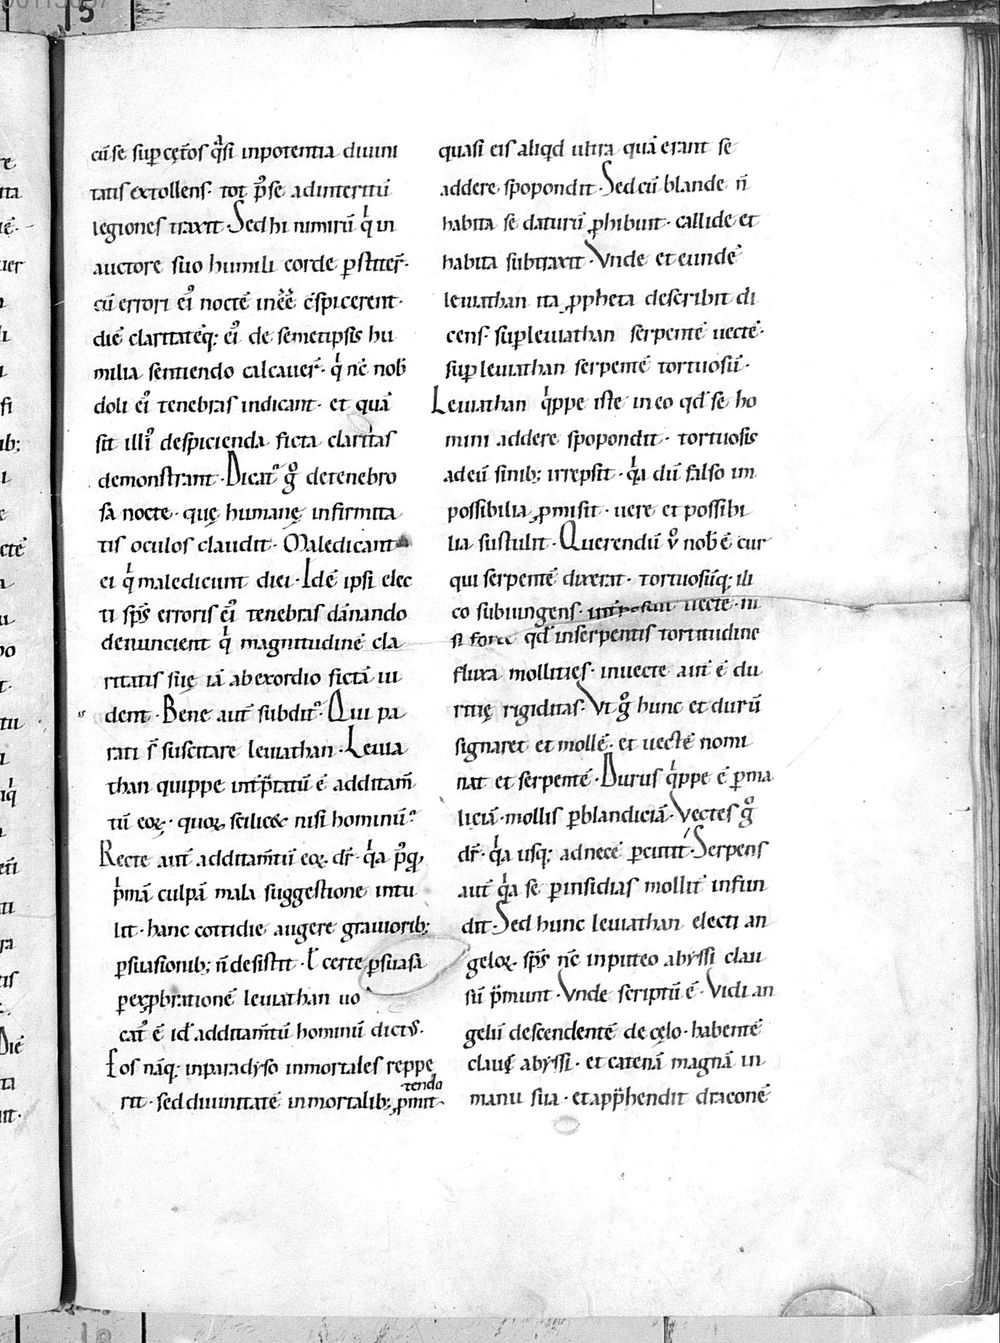 cū se suꝑ cęt̄os q̇si inpotentia diuini
tatis extollens· tot p̄ se ad interitū
legiones traxit· Sed hi nimirū qͥ in
auctore suo humili corde ꝑstiter̄·
cū errori ei᷒ noctē inēē c̄spicerent·
diē claritatēq; ei᷒ de semetipsis hu
milia sentiendo calcauer̄· qͥ nc̄ nob̄
doli ei᷒ tenebras indicant· et quā
sit illi᷒ despicienda ficta claritas
demonstrant· Dicat᷑ gͦ de tenebro
sa nocte· quę humanę infirmita
tis oculos claudit· Maledicant
ei qͥ maledicunt diei· Idē ipsi elec
ti sp̄s erroris ei᷒ tenebras dānando
denuncient qͥ magnitudinē cla
ritatis suę iā ab exordio fictā ui
dent· Bene aut̄ subdit᷑· Qui pa
rati s̄ suscitare leuiathan· Leuia
than quippe int̄p̄tatū ē additam̄
tū eoꝝ· quoꝝ scilic& nisi hominū?
Recte aut̄ additam̄tū eoꝝ dr̄· qͣa
pͥmā culpā mala suggestione intu
lit· hanc cottidie augere grauiorib;
ꝑsuasionib; n̄ desistit· ł certe ꝑsuasa
ꝑ exp̱brationē leuiathan uo
cat᷑ ē id᷑ additam̄tū hominū dict᷒·
Eos nāq; in paradyso inmortales reppe
tendo
rit· sed diuinitatē inmortalib; ꝓmit·
quasi eis aliqd ultra quā erant se
addere spopondit· Sed cū blande n̄
habita se daturū ꝓhibuit· callide et
habita subtraxit· Vnde et eundē
leuiathan ita ꝓpheta describit di
cens· suꝑ leuiathan serpentē uectē·
suꝑ leuiathan serpentē tortuosū·
Leuiathan qͥppe iste in eo qd̄ se ho
mini addere spopondit· tortuosis
ad eū sinib; irrepsit· qͣa dū falso im
possibilia ꝓmisit· uere et possibi
lia sustulit· Querendū v̊ nob̄ ē cur
qui serpentē dixerat· tortuosūq; ili
co subiungens· uectē· ni
si forte qd̄ in serpentis tortitudine
fluxa mollities· in uecte aut̄ ē du
ritię rigiditas· Vt gͦ hunc et durū
signaret et mollē· et uectē nomi
nat et serpentē· Durus qͥppe ē ꝑ ma
liciā· mollis ꝑ blandiciā· Vectes gͦ
dr̄· qͣa usq; ad necē ꝑcutit· Serpens
aut̄ qͣa se ꝑ insidias mollit̄ infun
dit· Sed hunc leuiathan electi an
geloꝝ· sp̄s nc̄ in puteo abyssi clau
sū p̄munt· Vnde scriptū ē· Vidi an
gelū descendentē de cęlo· habentē
clauē abyssi· et catenā magnā in
manu sua· et app̄hendit draconē